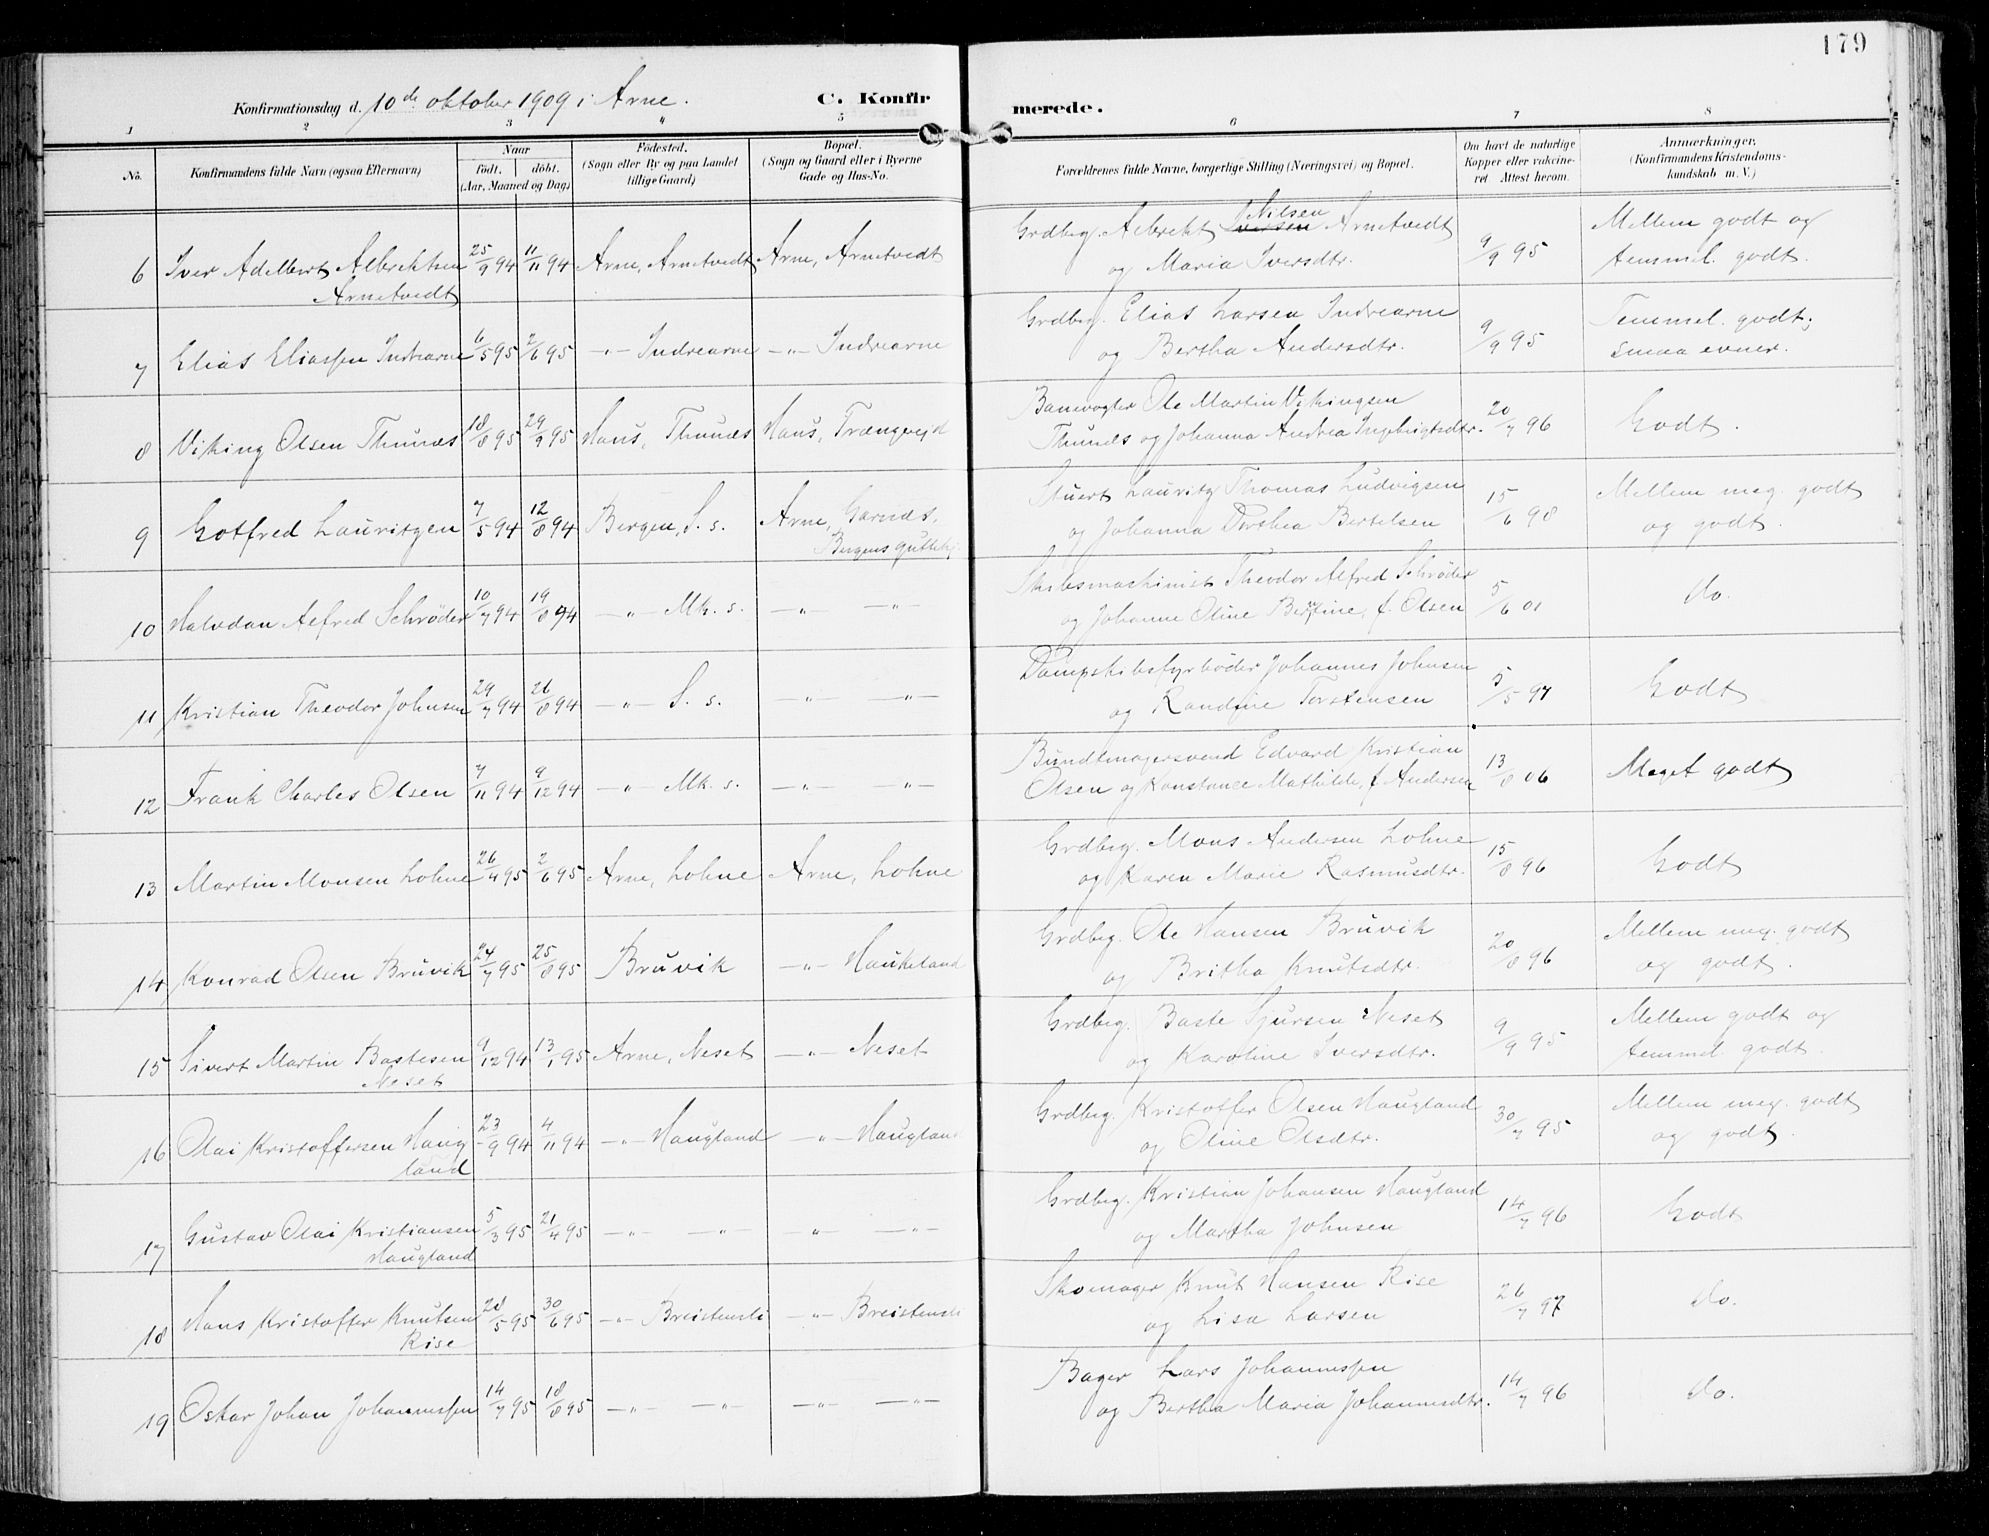 179
Konfirmationsdag d. 10de oktober 1909 i Arne. C. Konfir merede.
1 2 3 4 5 6 7 8
No. Konfirmandens fulde Navn (ogsaa Efternavn) Naar födt. döbt. (Aar, Maaned og Dag) Födested. (Sogn eller By og paa Landet tillige Gaard.) Bopæl. (Sogn og Gaard eller i Byerne Gade og Hus-No. Forældrenes fulde Navne, borgerlige Stilling (Næringsvei) og Bopæl. Om havt de naturlige Kopper eller vakcineret. Attest herom. Anmærkninger. (Konfirmandens Kristendomskundskab m. V.)
6 Iver Adelbert Albrektsen Arnetvedt 25/9 94 11/11 94 Arne, Arnetvedt Arne, Arnetvedt Grdbrg. Albrekt Iversen Nilsen Arnetvedt og Maria Iversdtr. 9/9 95 Mellem godt og temmel. godt.
7 Elias Eliassen Indrearne 6/5 95 2/6 95 -"- Indrearne -"- Indrearne Grdbrg. Elias Larsen Indrearne og Bertha Andersdtr. 9/9 95 Temmel. godt; smaa evner.
8 Viking Olsen Thunæs 18/8 95 29/9 95 Haus, Thunæs Haus, Trængereid Banevogter Ole Martin Vikingsen Thunæs og Johanna Andrea Ingebrigtsdtr. 20/7 96 Godt.
9 Gotfred Lauritzen 7/5 94 12/8 94 Bergen, S. s. Arne, Garnæs, Bergens guttehj. Stuert Lauritz Thomas Ludvigsen og Johanna Dorthea Bertelsen 15/6 98 Mellem meg. godt og godt.
10 Halvdan Alfred Schrøder 10/7 94 19/8 94 -"- Mk. s. -"- -"- Skibsmaskinist Theodor Alfred Schrøder og Johanne Oline Bertine, f. Olsen 5/6 01 do.
11 Kristian Theodor Johnsen 29/7 94 26/8 94 -"- S. s. -"- -"- Dampskibsfyrbøder Johannes Johnsen og Randine Torstensen 5/5 97 Godt
12 Frank Charles Olsen 7/11 94 9/12 94 -"- Mk. s. -"- -"- Bundtmagersvend Edvard Kristian Olsen og Konstance Mathilde, f. Andersen 13/8 06 Meget godt
13 Martin Monsen Lohne 26/4 95 2/6 95 Arne, Lohne Arne, Lohne Grdbrg. Mons Andersen Lohne og Karen Marie Rasmusdtr. 15/8 96 Godt
14 Konrad Olsen Bruvik 24/7 95 25/8 95 Bruvik -"- Haukeland Grdbrg. Ole Hansen Bruvik og Britha Knutsdtr. 20/8 96 Mellem meg. godt og godt.
15 Sivert Martin Bastesen Neset 9/12 94 13/1 95 Arne, Neset -"- Neset Grdbrg. Baste Sjursen Neset og Karoline Iversdtr. 9/9 95 Mellem godt og temmel. godt.
16 Olai Kristoffersen Haugland 23/9 94 4/11 94 -"- Haugland -"- Haugland Grdbrg. Kristoffer Olsen Haugland og Oline Olsdtr. 30/7 95 Mellem meg. godt og godt.
17 Gustav Olai Kristiansen Haugland 5/3 95 21/4 95 -"- -"- -"- -"- Grdbrg. Kristian Johansen Haugland og Martha Johnsen 14/7 96 Godt
18 Hans Kristoffer Knutsen Rise 28/5 95 30/6 95 -"- Breistensli -"- Breistensli Skomager Knut Hansen Rise og Lisa Larsen 26/7 97 do.
19 Oskar Johan Johannessen 14/7 95 18/8 95 -"- -"- -"- -"- Bager Lars Johannessen og Bertha Maria Johannesdtr. 14/7 96 do.